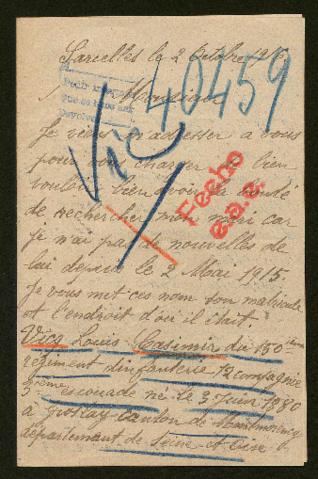 Sarcelles le 2 Octobre 1916
40459
Monsieur
Vic
Je vous adresser a vous
pour bien
vouloir bien avoir la bonté
de rechercher mon mari car
Fecho
e.a.g.
je n'ai pas de nouvelles de
lui depuis le 2 Mai 1915.
Je vous met ces nom son matricule
et l'endroit d'ou il était.
Vicq Louis Casimir du 150ième
regiment d'infanterie 12 compagnie
3ème escouade né le 3 Juin 1880
a Groslay Canton de Montmorency
département de Seine et Oise